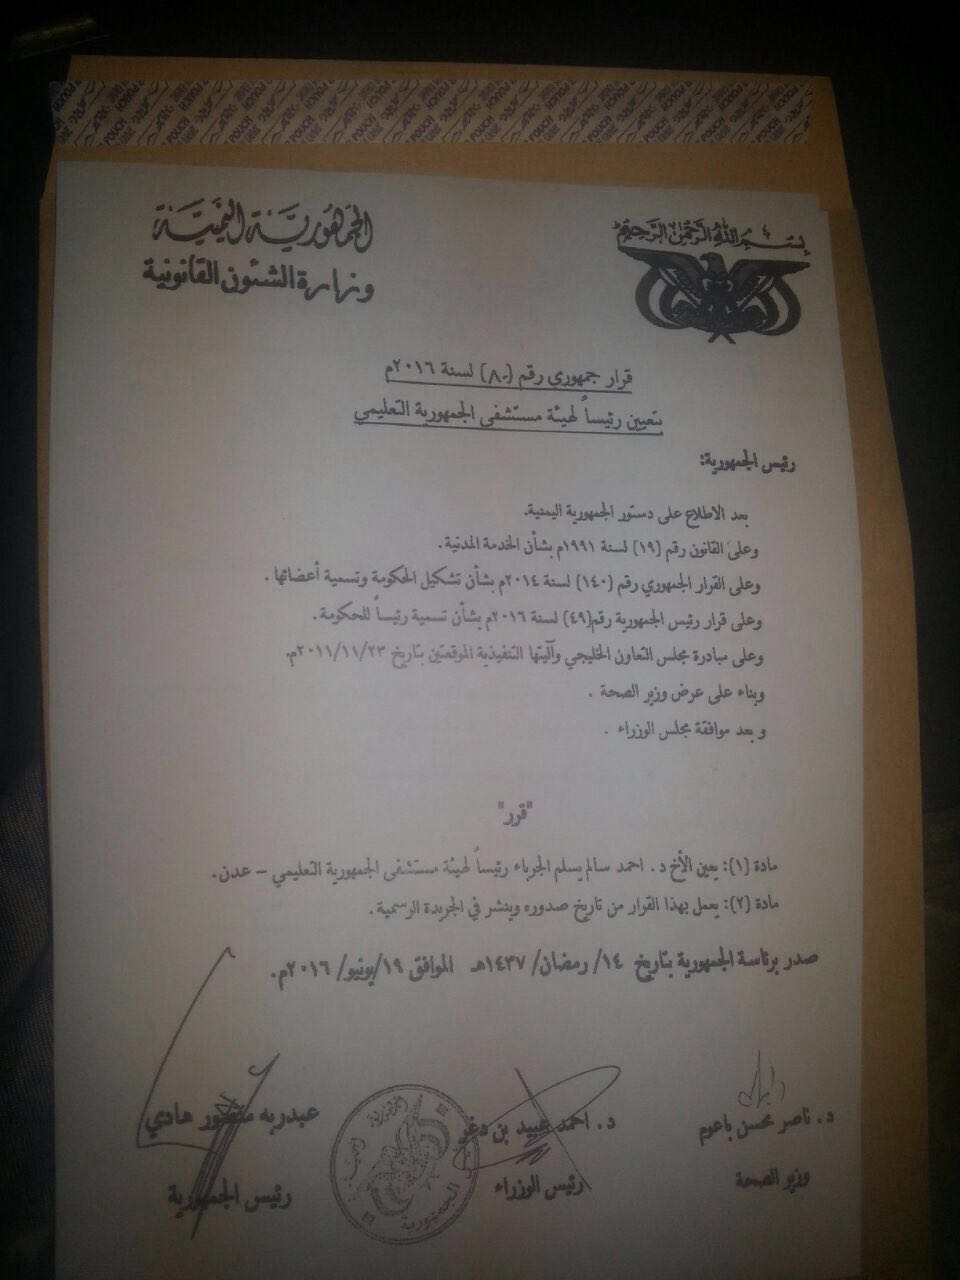 بسم الله الرحمن الرحيم
الجمهورية اليمنية
وزارة الشئون القانونية
قرار جمهوري رقم (٨٠) لسنة ٢٠١٦م
بتعيين رئيساً لهيئة مستشفى الجمهورية التعليمي
رئيس الجمهورية:
بعد الاطلاع على دستور الجمهورية اليمنية.
وعلى القانون رقم (١٩) لسنة ١٩٩١م بشأن الخدمة المدنية.
وعلى القرار الجمهوري رقم (١٤٠) لسنة ٢٠١٤م بشأن تشكيل الحكومة وتسمية أعضائها.
وعلى قرار رئيس الجمهورية رقم(٤٩) لسنة ٢٠١٦م بشأن تسمية رئيساً للحكومة.
وعلى مبادرة مجلس التعاون الخليجي وآليتها التنفيذية الموقعتين بتاريخ ٢٠١١/١١/٢٣م.
وبناء على عرض وزير الصحة .
و بعد موافقة مجلس الوزراء .
"قرر"
مادة (١): يعين الأخ د. احمد سالم يسلم الجرباء رئيساً لهيئة مستشفى الجمهورية التعليمي – عدن.
مادة (٢): يعمل بهذا القرار من تاريخ صدوره وينشر في الجريدة الرسمية.
صدر برئاسة الجمهورية بتاريخ ١٤/ رمضان/ ١٤٣٧هـ الموافق ١٩/يونيو/ ٢٠١٦م.
د. ناصر محسن باعوم
وزير الصحة
د. احمد عبيد بن دغر
رئيس الوزراء
عبدربه منصور هادي
رئيس الجمهورية